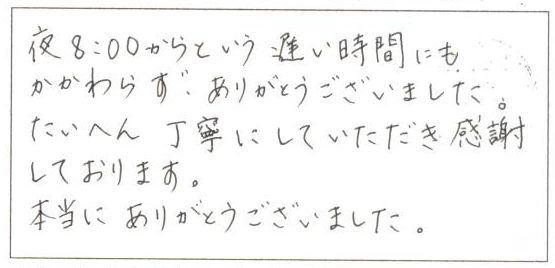 夜8:00からという遅い時間にも
かかわらず、ありがとうございました。
たいへん丁寧にしていただき感謝
しております。
本当にありがとうございました。